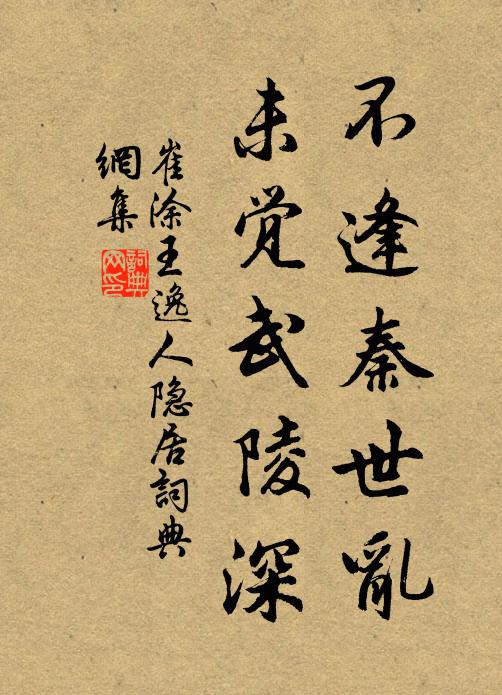 不逢秦世亂
未觉武陵深
崔涂王逸人隐居詞典
網集
詞典
网印